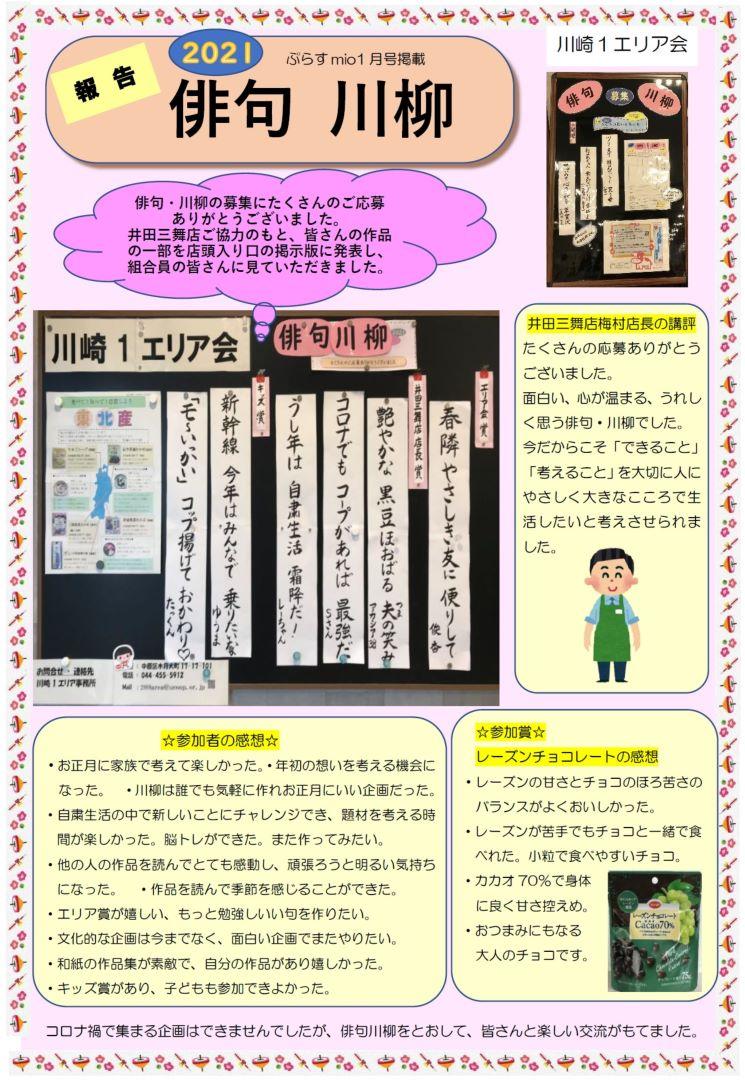 川崎1エリア会
報告
2021
ぷらすmio1月号掲載
俳句 川柳
俳句 募集 川柳
俳句・川柳の募集にたくさんのご応募
ありがとうございました。
井田三舞店ご協力のもと、皆さんの作品
の一部を店頭入り口の掲示版に発表し、
組合員の皆さんに見ていただきました。
川崎1エリア会
俳句川柳
エリア会賞
春隣 やさしき友に 便りして
俊杏
井田三舞店 店長賞
艶やかな 黒豆ほおばる 夫の笑み
アカシア38
コロナでも コープがあれば 最強だ
Sさん
うし年は 自粛生活 霜降だ!
しーちゃん
キッズ賞
新幹線 今年はみんなで 乗りたいな
ゆうま
「モ〜いっかい」 コップ揚げて おかわり♡
たっくん
東北産
お問合せ・連絡先
川崎1エリア事務所
:中原区木月大町17-17-101
電話:044-455-5912
井田三舞店梅村店長の講評
たくさんの応募ありがとう
ございました。
面白い、心が温まる、うれし
く思う俳句・川柳でした。
今だからこそ「できること」
「考えること」を大切に人に
やさしく大きなこころで生
活したいと考えさせられま
した。
☆参加者の感想☆
・お正月に家族で考えて楽しかった。・年初の想いを考える機会に
なった。 ・川柳は誰でも気軽に作れお正月にいい企画だった。
・自粛生活の中で新しいことにチャレンジでき、題材を考える時
間が楽しかった。脳トレができた。また作ってみたい。
・他の人の作品を読んでとても感動し、頑張ろうと明るい気持ち
になった。 ・作品を読んで季節を感じることができた。
・エリア賞が嬉しい、もっと勉強しいい句を作りたい。
・文化的な企画は今までなく、面白い企画でまたやりたい。
・和紙の作品集が素敵で、自分の作品があり嬉しかった。
・キッズ賞があり、子どもも参加できよかった。
☆参加賞☆
レーズンチョコレートの感想
・レーズンの甘さとチョコのほろ苦さの
バランスがよくおいしかった。
・レーズンが苦手でもチョコと一緒で食
べれた。小粒で食べやすいチョコ。
・カカオ70%で身体
に良く甘さ控えめ。
・おつまみにもなる
大人のチョコです。
レーズンチョコレート
Cacao70%
コロナ禍で集まる企画はできませんでしたが、俳句川柳をとおして、皆さんと楽しい交流がもてました。